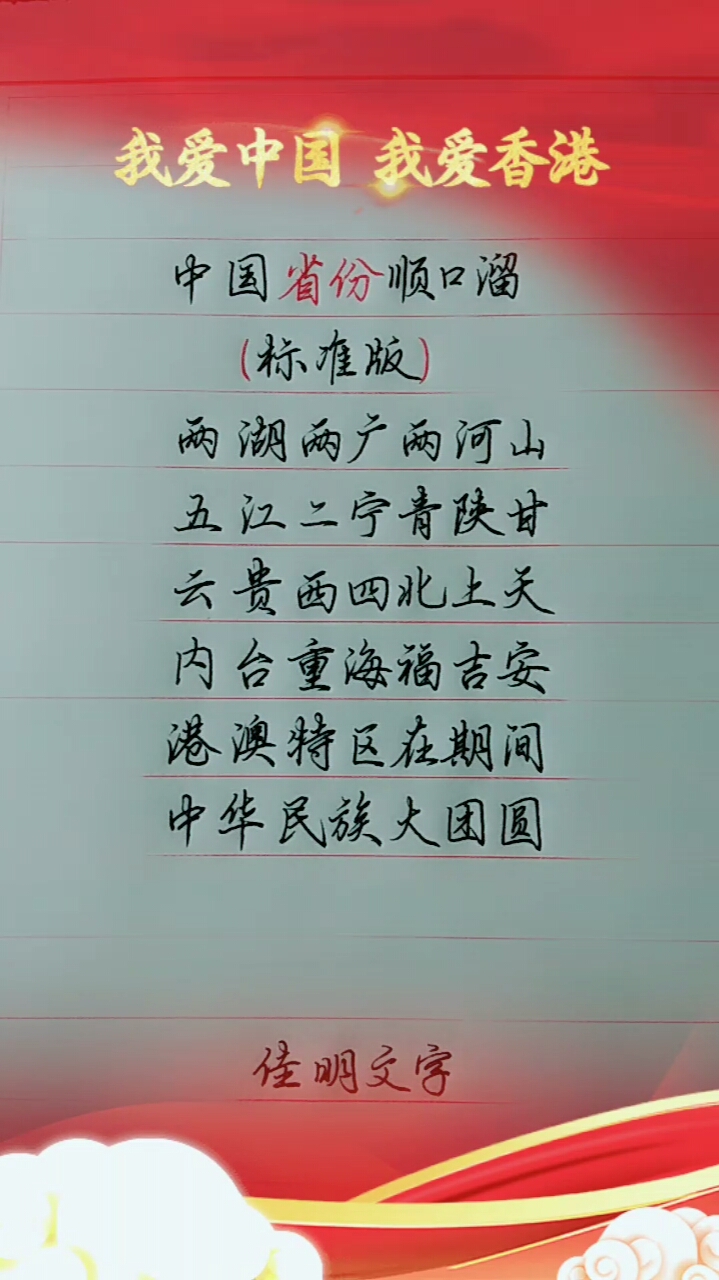 我爱中国 我爱香港
中国省份顺口溜
(标准版)
两湖两广两河山
五江二宁青陕甘
云贵西四北上天
内台重海福吉安
港澳特区在期间
中华民族大团圆
佳明文字